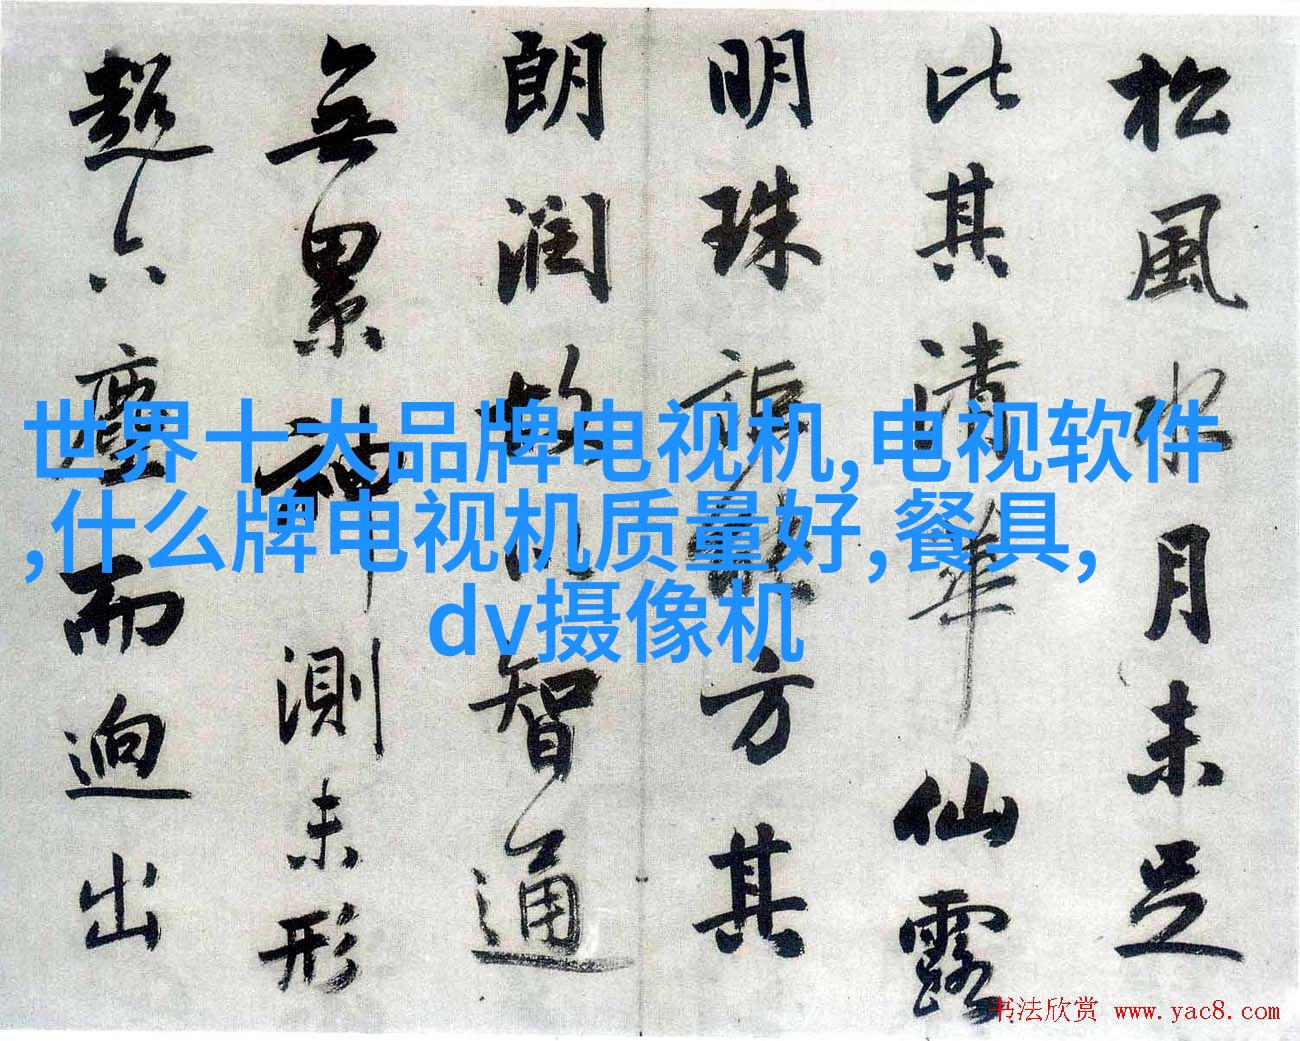 松風水月未足
比其清華仙露
明珠詎能方其
朗潤故以智通
無累神測未形
超六塵而迥出
世界十大品牌电视机,电视软件
,什么牌电视机质量好,餐具,
dv摄像机
书法欣赏 www.yac8.com